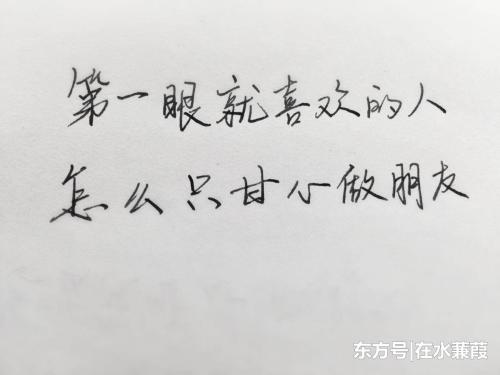 第一眼就喜欢的人
怎么只甘心做朋友
东方号|在水蒹葭